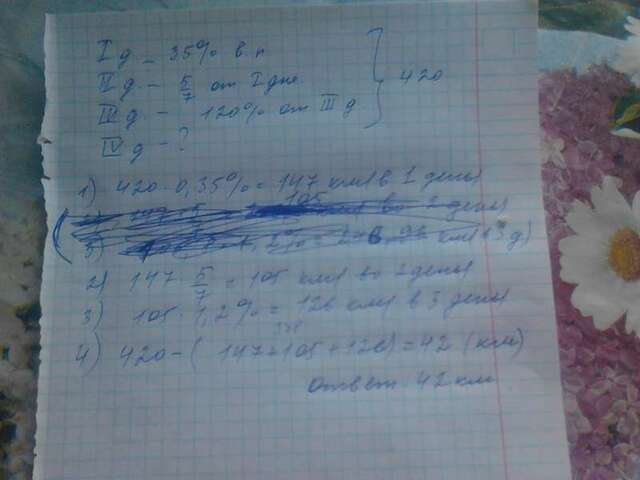 I д – 35% в п
II д – 5/7 от I дня
III д – 120% от III д
IV д – ?
420
1) 420 · 0,35% = 147 км в 1 день
105
2) 147 · 5/7 = 105 км во 2 день
3) 105 · 1,2% = 126 км в 3 день
378
4) 420 – ( 147 + 105 + 126) = 42 (км)
ответ: 42 км